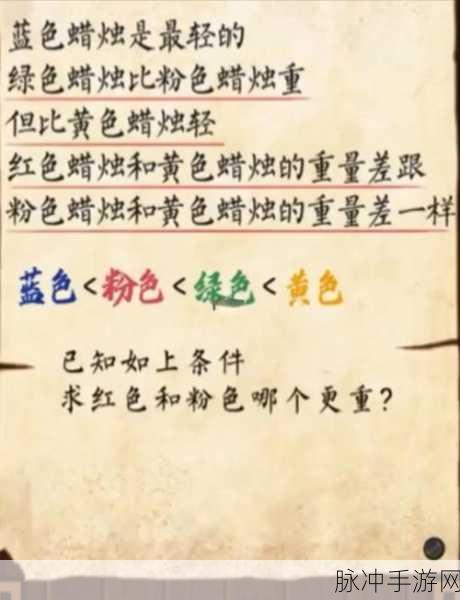 蓝色蜡烛是最轻的
绿色蜡烛比粉色蜡烛重
但比黄色蜡烛轻
红色蜡烛和黄色蜡烛的重量差跟
粉色蜡烛和黄色蜡烛的重量差一样
蓝色<粉色<绿色<黄色
已知如上条件
求红色和粉色哪个更重?
脉冲手游网